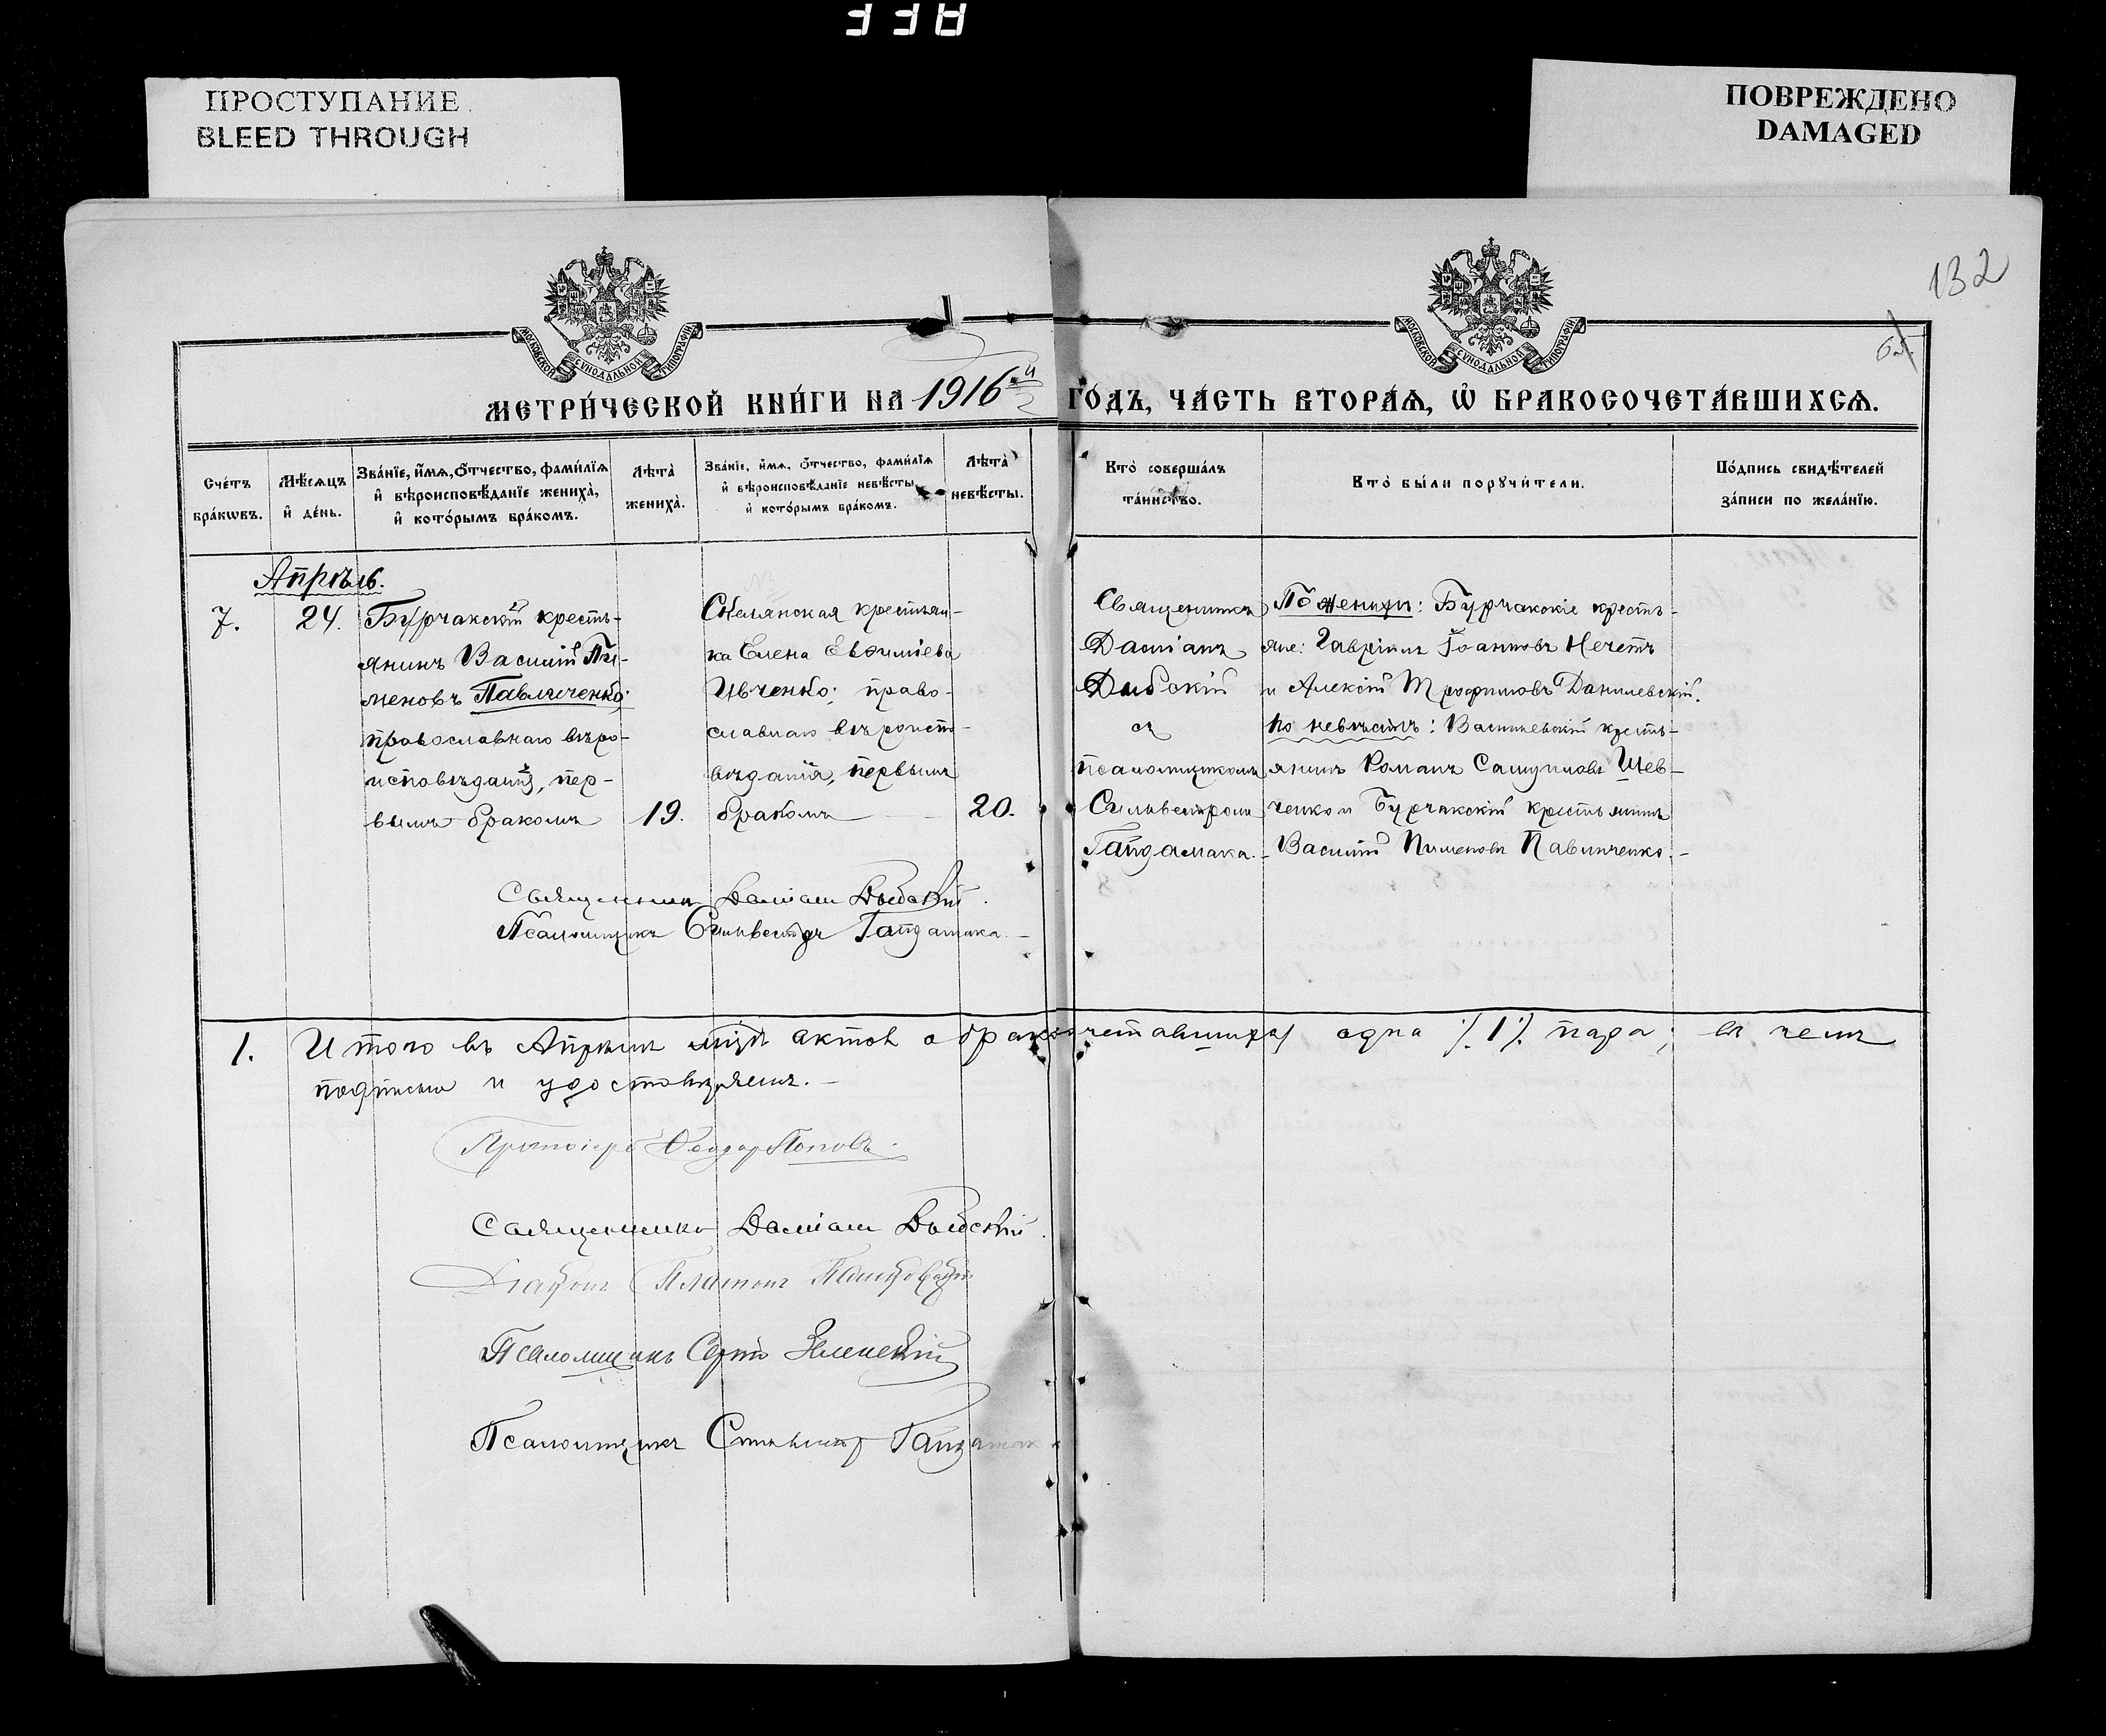 ПРОСТУПАНИЕ
BLEED THROUGH
ПОВРЕЖДЕНО
DAMAGED
132
МОСКОВСКОЙ СѴНОДАЛЬНОЙ ТИПОГРАФІИ
МОСКОВСКОЙ СѴНОДАЛЬНОЙ ТИПОГРАФІИ
МЕТРИ́ЧЕСКОЙ КНИ́ГИ НА 1916й ГО́ДЪ, ЧА́СТЬ ВТОРА́Ѧ, Ѡ҆ БРАКОСОЧЕТА́ВШИХСѦ.
Сче́тъ бра́кѡвъ.
Мѣ́сѧцъ и҆ де́нь.
Зва́нїе, и҆́мѧ, ѻ҆́тчество, фами́лїѧ и҆ вѣроисповѣ́данїе жениха̀, и҆ кото́рымъ бра́комъ.
Лѣта̀ жениха̀.
Зва́нїе, и҆́мѧ, ѻ҆́тчество, фами́лїѧ и҆ вѣроисповѣ́данїе невѣ́сты, и҆ кото́рымъ бра́комъ.
Лѣта̀ невѣ́сты.
Кто̀ соверша́лъ та́инство.
Кто̀ бы́ли порꙋчи́тели.
По́дпись свидѣ́телей за́писи по жела́нїю.
Апрѣль.
7.
24.
Бурчакскій кресть-
янинъ Василій Пи-
меновъ Павличенко;
православнаго вѣро-
исповѣданія, пер-
вымъ бракомъ
19.
крестьян-
ка Елена Евѳиміева
Ивченко; право-
славнаго вѣроиспо-
вѣданія, первымъ
бракомъ
20.
Священникъ
Даміанъ
съ
псаломщикомъ
Сильвестромъ
Гайдамака.
По женихѣ: Бурчакскіе кресть-
яне: Гавріилъ Іоанновъ Нечетъ
и Алексій Трофимовъ Данилевскій.
по невѣстѣ: Васильевскій кресть-
янинъ Романъ Шев-
ченко и Бурчакскій крестьянинъ
Василій Пименовъ Павличенко.
Священникъ Даміанъ
Псаломщикъ Сильвестръ Гайдамака.
1. Итого въ Апрѣлѣ мцѣ актов о бракосочетавшихся одна /.1/. пара; въ чемъ
подписью и удостовѣряемъ.
Протоіерей Ѳеодоръ Поповъ.
Священникъ Даміанъ
Діаконъ Платонъ
Псаломщикъ Сергій Зеленскій
Псаломщикъ Сильвестръ Гайдамака